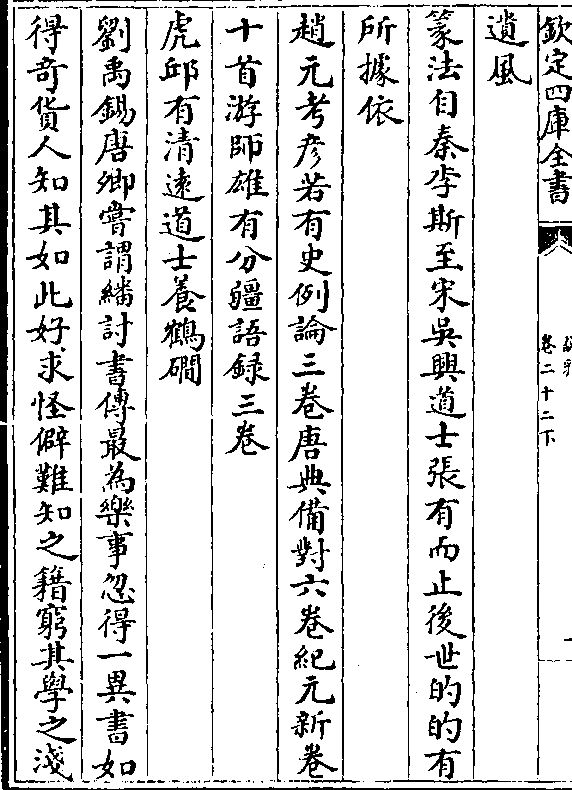 欽定四庫全書
卷二十二下
遺風
篆法自秦李斯至宋吳興道士張有而止後世的的有
所據依
趙元考彦若有史例論三卷唐典備對六卷紀元新卷
十首游師雄有分疆語録三卷
虎邱有清逺道士養鶴磵
劉禹錫唐卿嘗謂繙討書傳最為樂事忽得一異書如
得奇貨人知其如此好求怪僻難知之籍窮其學之淺